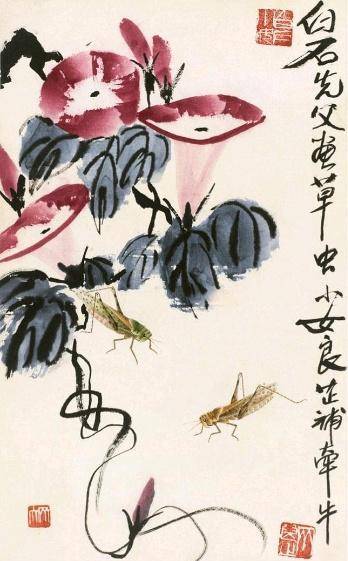 白石先父画草虫小女良芷补牵牛